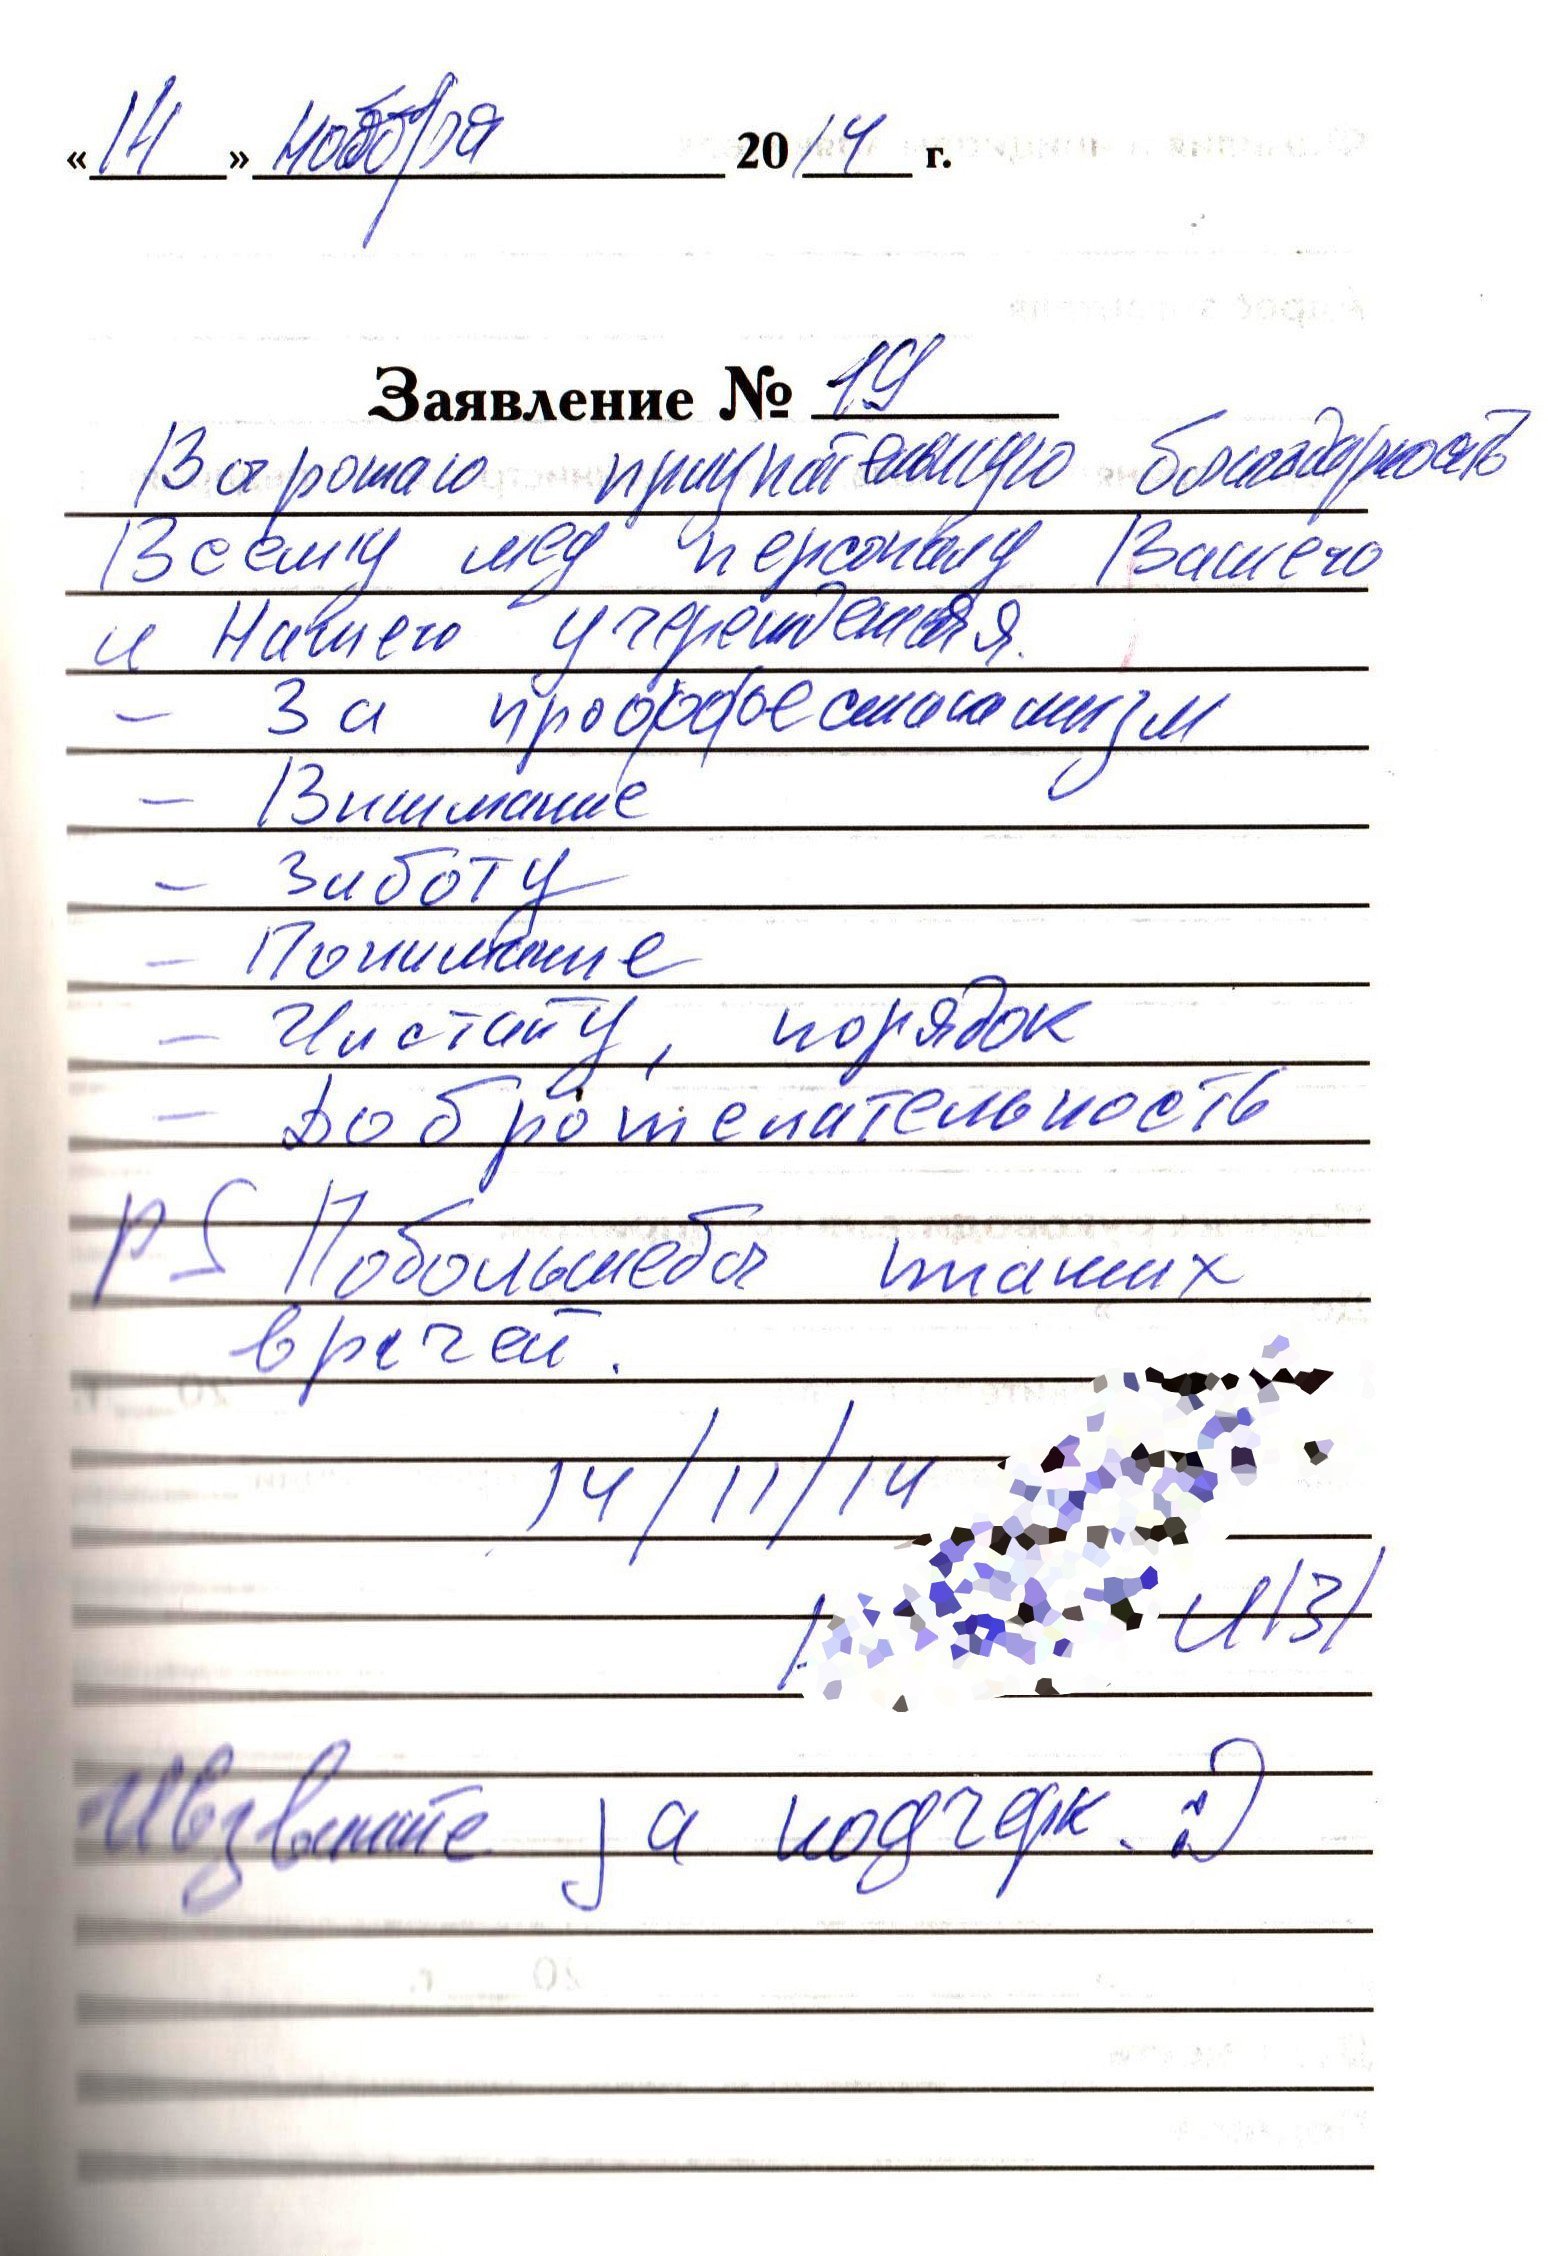 «14» ноября 2014 г.
Заявление № 19
Ворошаю признательную благодарность
Всему мед персоналу Вашего
и Нашего учереждения.
- За профофесионализм
- Внимание
- Заботу
- Понимание
- Чистату, порядок
- Доброжелательность
PS Побольшебы таких
врачей.
14/11/14
Извените за подчерк. :)